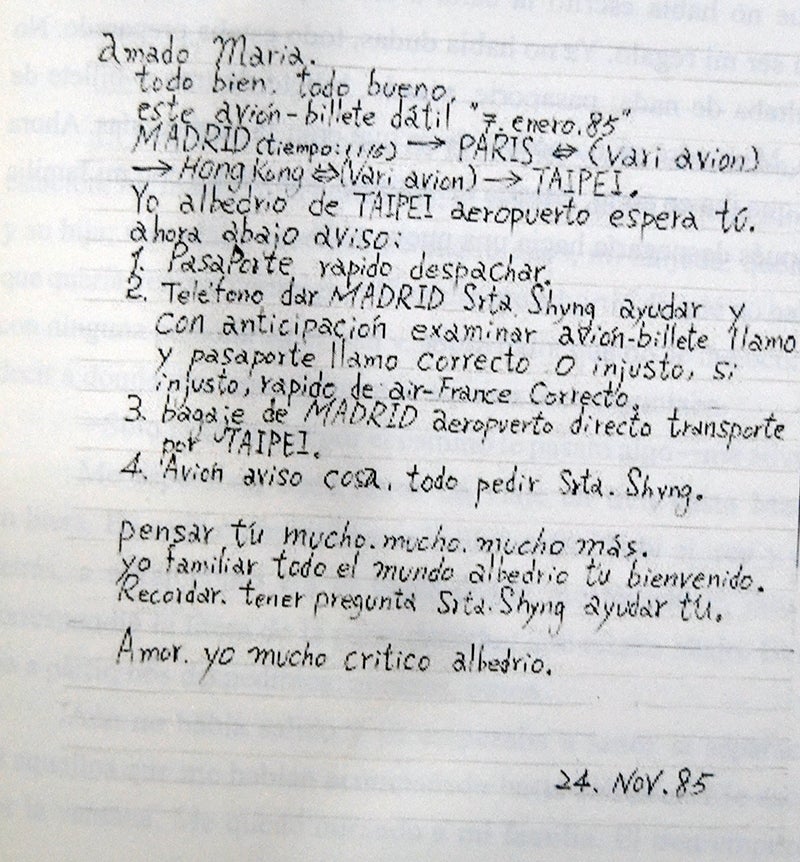 amado Maria.
todo bien, todo bueno,
este avión-billete dátil "7. enero. 85"
MADRID (tiempo: 1115) → PARIS ⇔ (vari avion)
→ Hong Kong ⇔ (vari avion) → TAIPEI.
Yo albedrio de TAIPEI aeropuerto espera tú.
ahora abajo aviso:
1. Pasaporte, rapido despachar.
2. Teléfono dar MADRID Srta. Shyng ayudar y
con anticipación examinar avión-billete llamo
y pasaporte llamo correcto o injusto, si
injusto, rapido de air-France Correcto,
3. bagaje de MADRID aeropuerto directo transporte
por TAIPEI.
4. Avión aviso cosa, todo pedir Srta. Shyng.
pensar tú mucho. mucho. mucho más.
yo familiar todo el mundo albedrio tu bienvenido.
Recordar. tener pregunta Srta. Shyng ayudar tú.
Amor. yo mucho critico albedrio.
24. NOV. 85